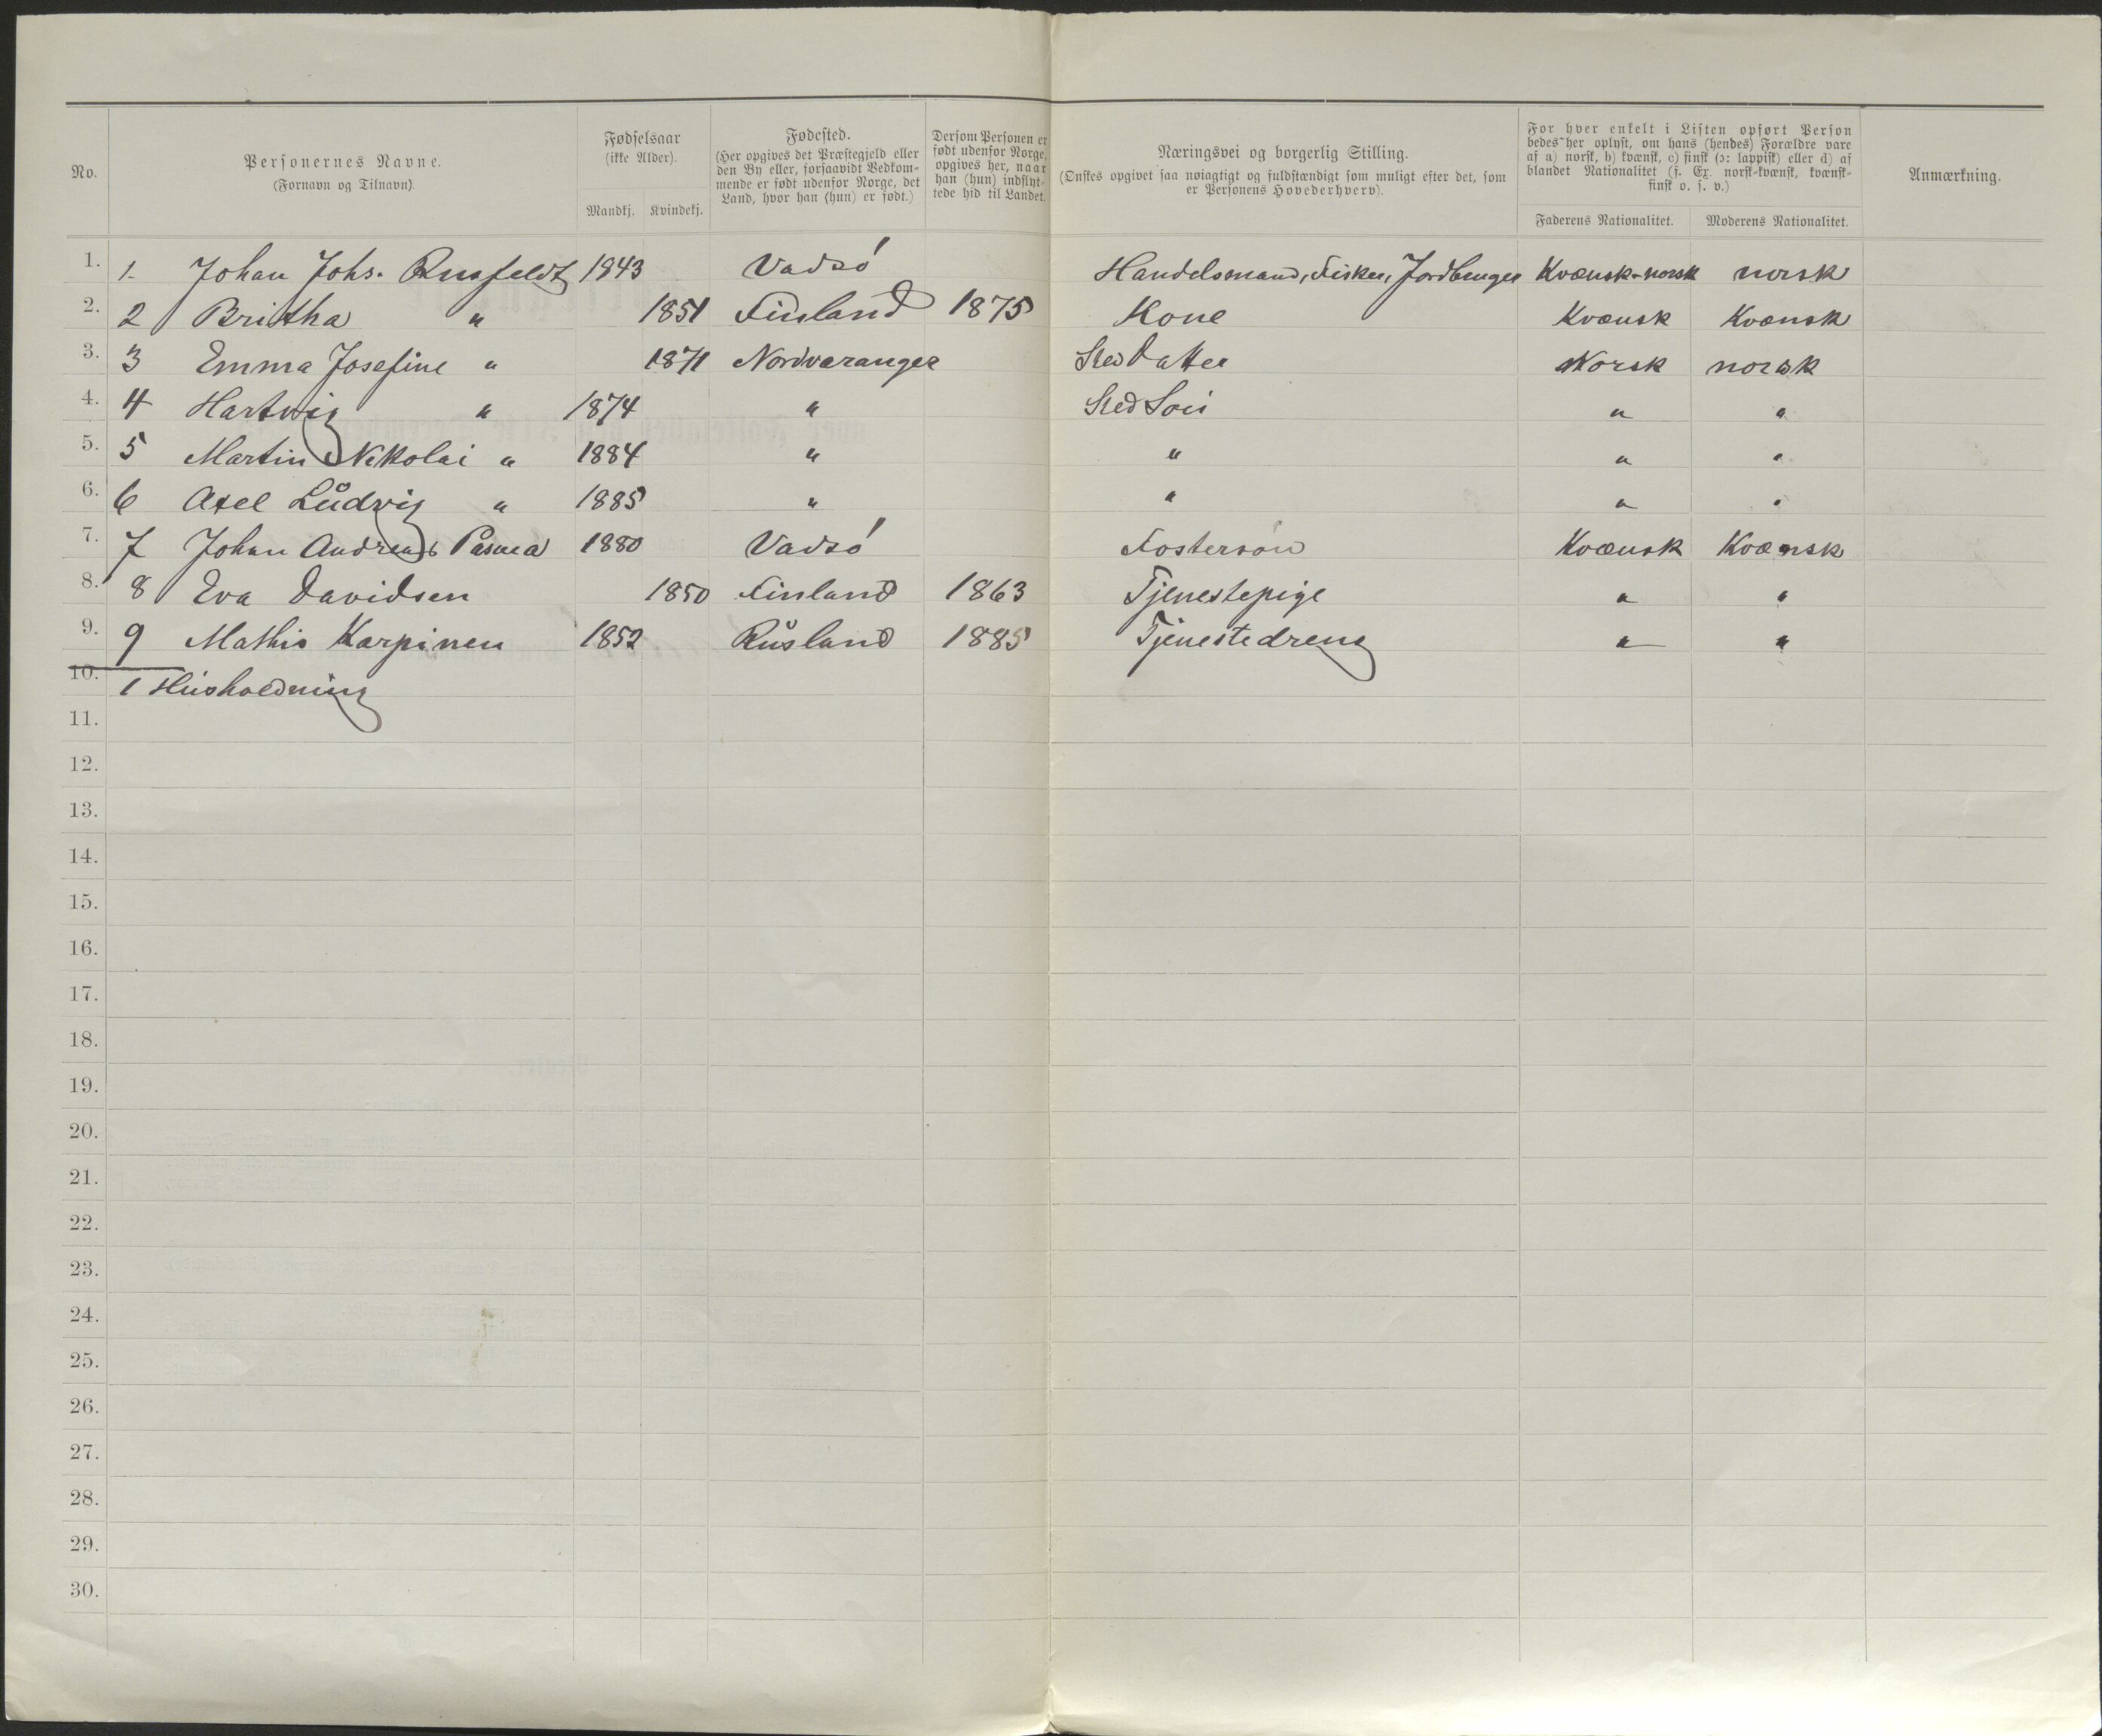 No.
Personernes Navne.
(Fornavn og Tilnavn).
Fødselsaar
(ikke Alder).
Mandkj. Kvindekj.
Fødested.
(Her opgives det Præstegjeld eller
den By eller, forsaavidt Vedkom-
mende er født udenfor Norge, det
Land, hvor han (hun) er født.)
Dersom Personen er
født udenfor Norge,
opgives her, naar
han (hun) indflyt-
tede hid til Landet.
Næringsvei og borgerlig Stilling.
(Ønskes opgivet saa nøiagtigt og fuldstændigt som muligt efter det, som
er Personens Hovederhverv).
For hver enkelt i Listen opført Person
bedes her oplyst, om hans (hendes) Forældre vare
af a) norsk, b) kvænsk, c) finsk (ɔ: lappisk) eller d) af
blandet Nationalitet (f. Ex. norsk-kvænsk, kvænsk-
finsk o. s. v.)
Faderens Nationalitet. Moderens Nationalitet.
Anmærkning.
1. 1. Johan Johs. Rusfeldt 1843 Vadsó Handelsmand, Fisker, Jordbruger Kvænsk-norsk norsk
2. 2 Britha " 1851 Finland 1875 Kone Kvænsk Kvænsk
3. 3 Emma Josefine " 1871 Nordvaranger Sted Datter Norsk norsk
4. 4 Hartvig " 1874 " Sted Sön " "
5. 5 Martin Nikolai " 1884 " " " "
6. 6 Axel Ludvig " 1885 " " " "
7. 7 Johan Andreas 1880 Vadsó Fostersön Kvænsk Kvænsk
8. 8 Eva Davidsen 1850 Finland 1863 Tjenestepige " "
9. 9 Mathis Karpinen 1852 Rusland 1885 Tjenestedreng " "
10. 1 Husholdning
11.
12.
13.
14.
15.
16.
17.
18.
19.
20.
21.
22.
23.
24.
25.
26.
27.
28.
29.
30.